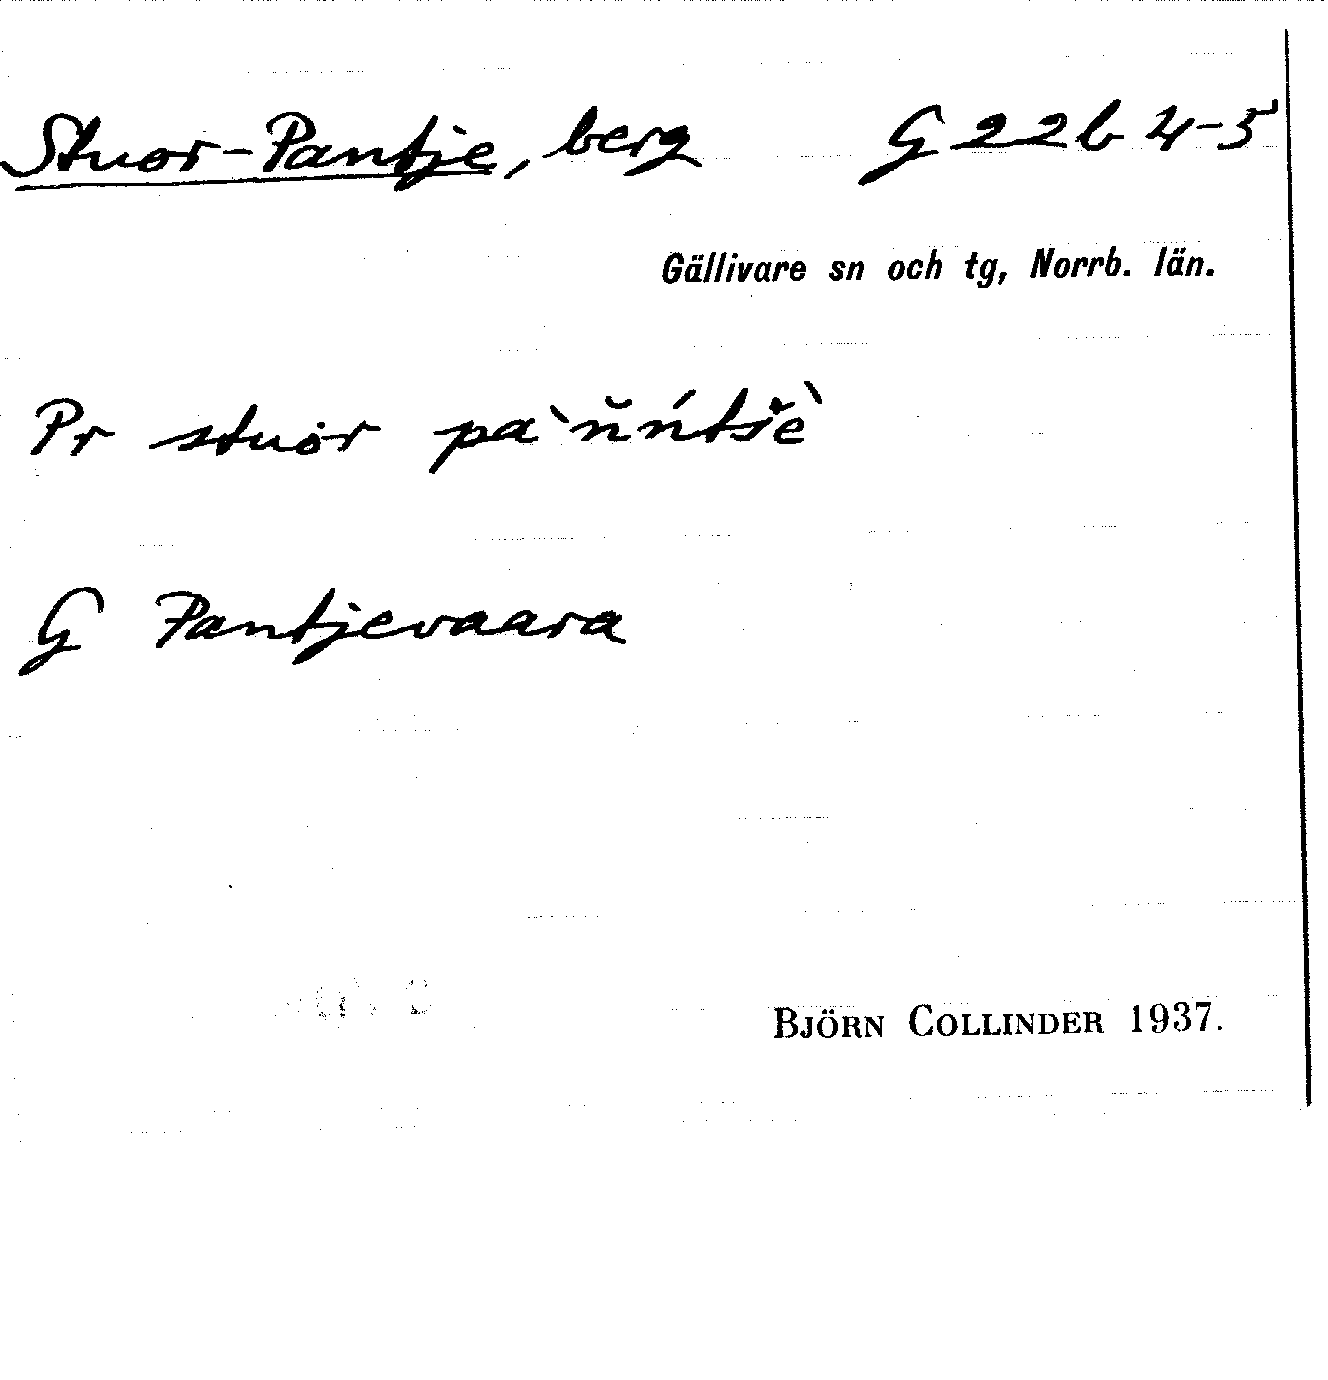 Stuor-Pantje, berg G 22b 4-5
Gällivare sn och tg, Norrb. län.
Pr stuȯr pa`n̆ńtšè
G Pantjevaara
BJÖRN COLLINDER 1937.